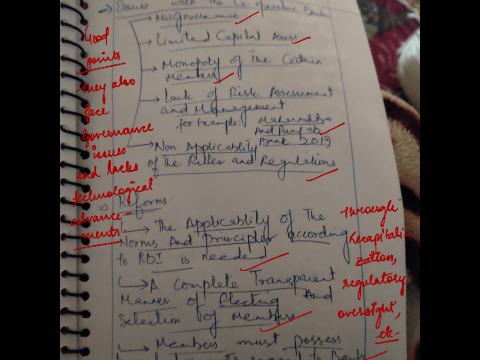 → Issues with the Co-operative Banks
→ Misgovernance
→ Limited Capital Assess
→ Monopoly of The Certain
Members
→ Lack of Risk Assessment
and Management
for example, Maharashtra
And Punjab
Bank 2019
→ Non Applicability
of The Rules and Regulations
Good
points
They also
face
governance
issues
and lacks
technological
advance-
ments
⇒ Reforms
→ The Applicability of The
Norms And principles according
to RBI is needed
→ A complete Transparent
Manner of Electing And
Selection of Members
→ Members must possess
through
Recapitali
zation,
regulatory
oversight,
etc.